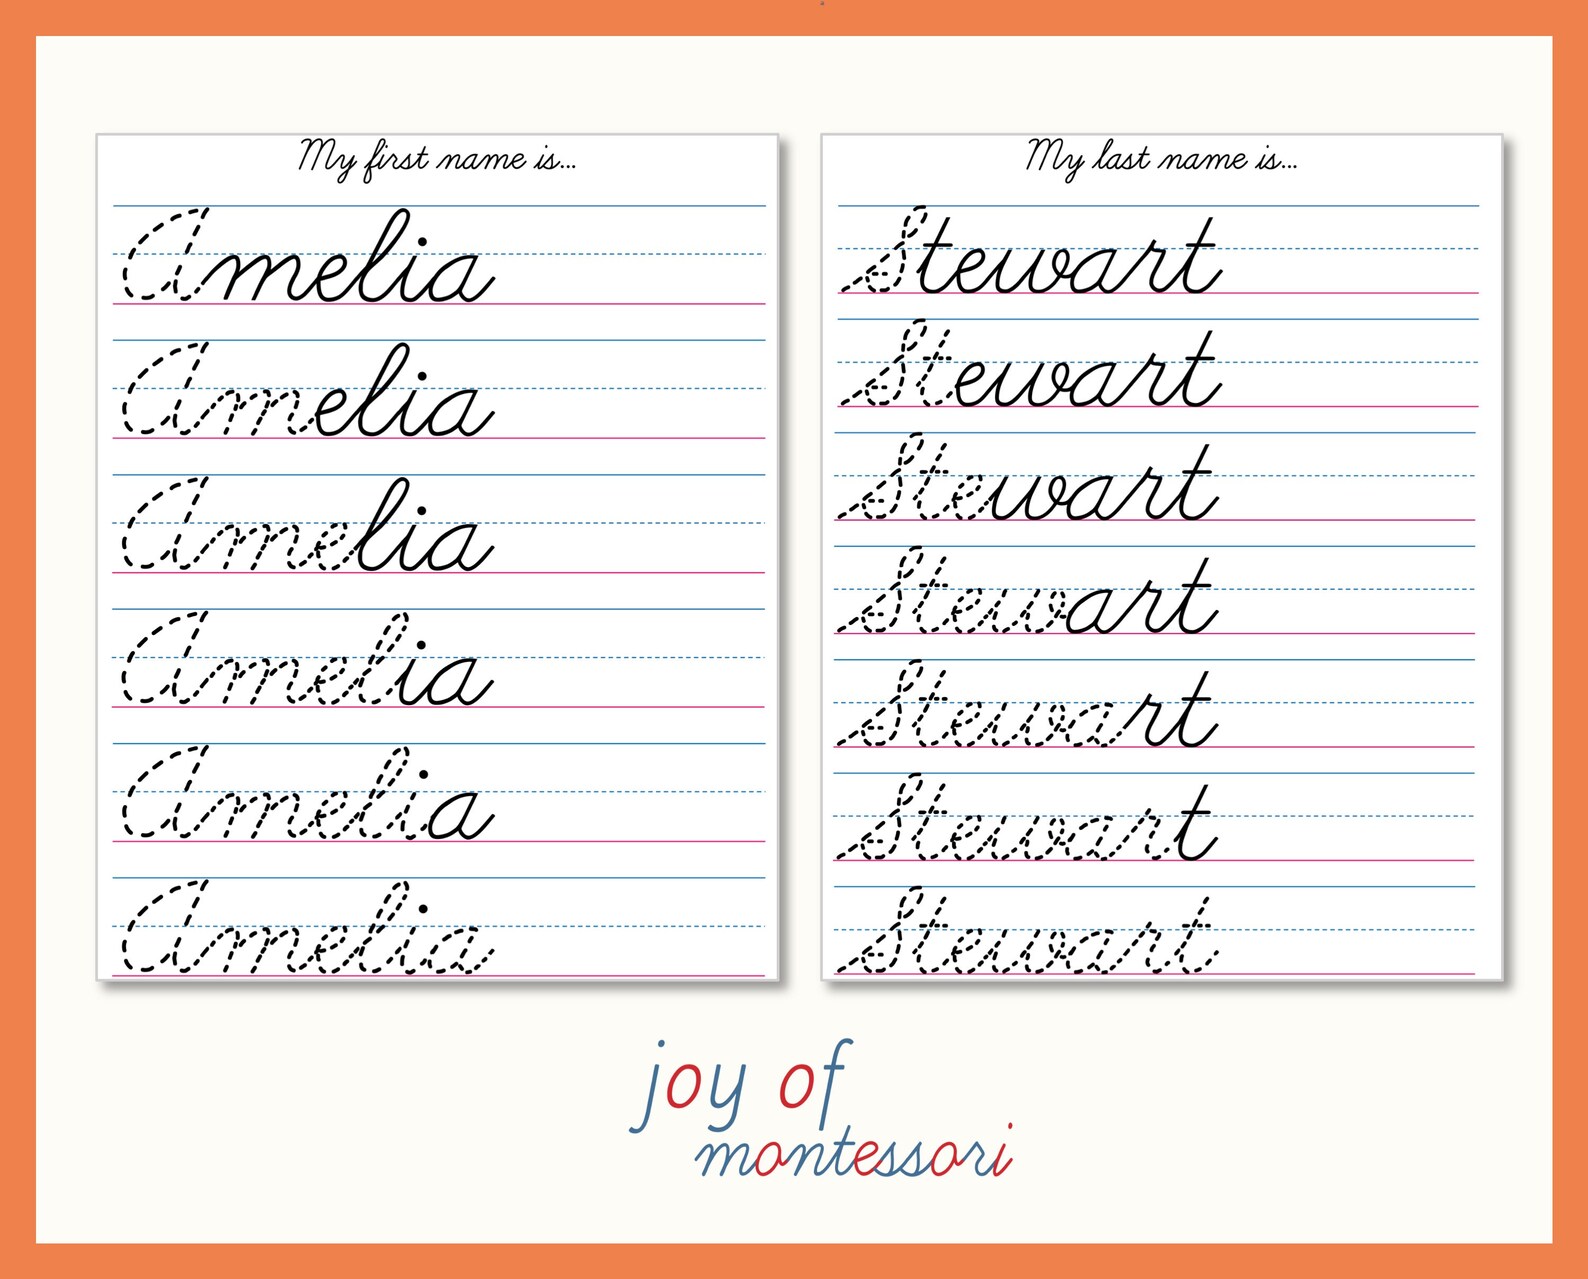 My first name is...
Amelia
Amelia
Amelia
Amelia
Amelia
Amelia
My last name is...
Stewart
Stewart
Stewart
Stewart
Stewart
Stewart
Stewart
joy of
montessori